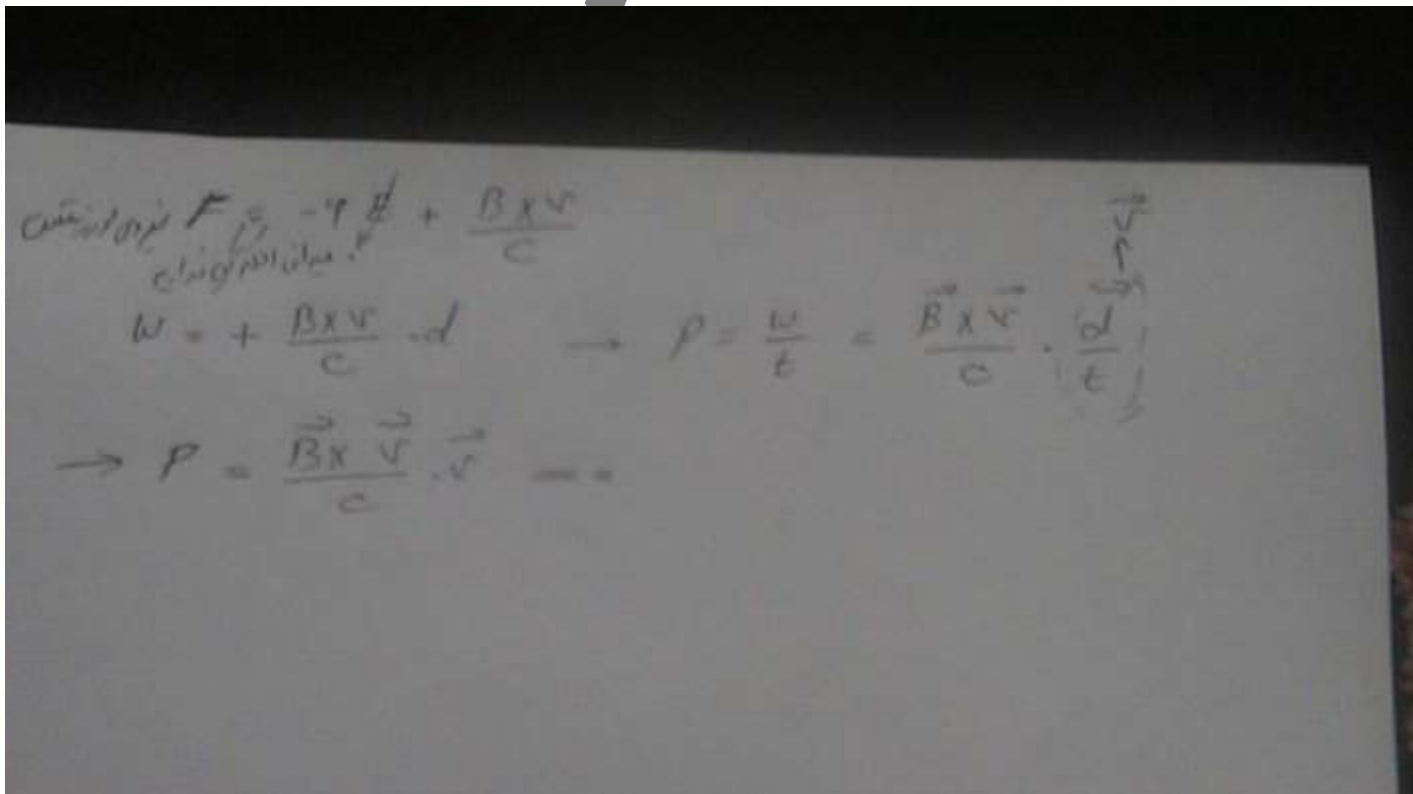 نیروی لورنتس F = -q E + B x v / c
میدان الکتریکی نداریم
W = + B x v / c . d → P = W / t = B⃗ x v⃗ / c . ( d⃗ / t ) → v⃗
→ P = B⃗ x v⃗ / c . v⃗